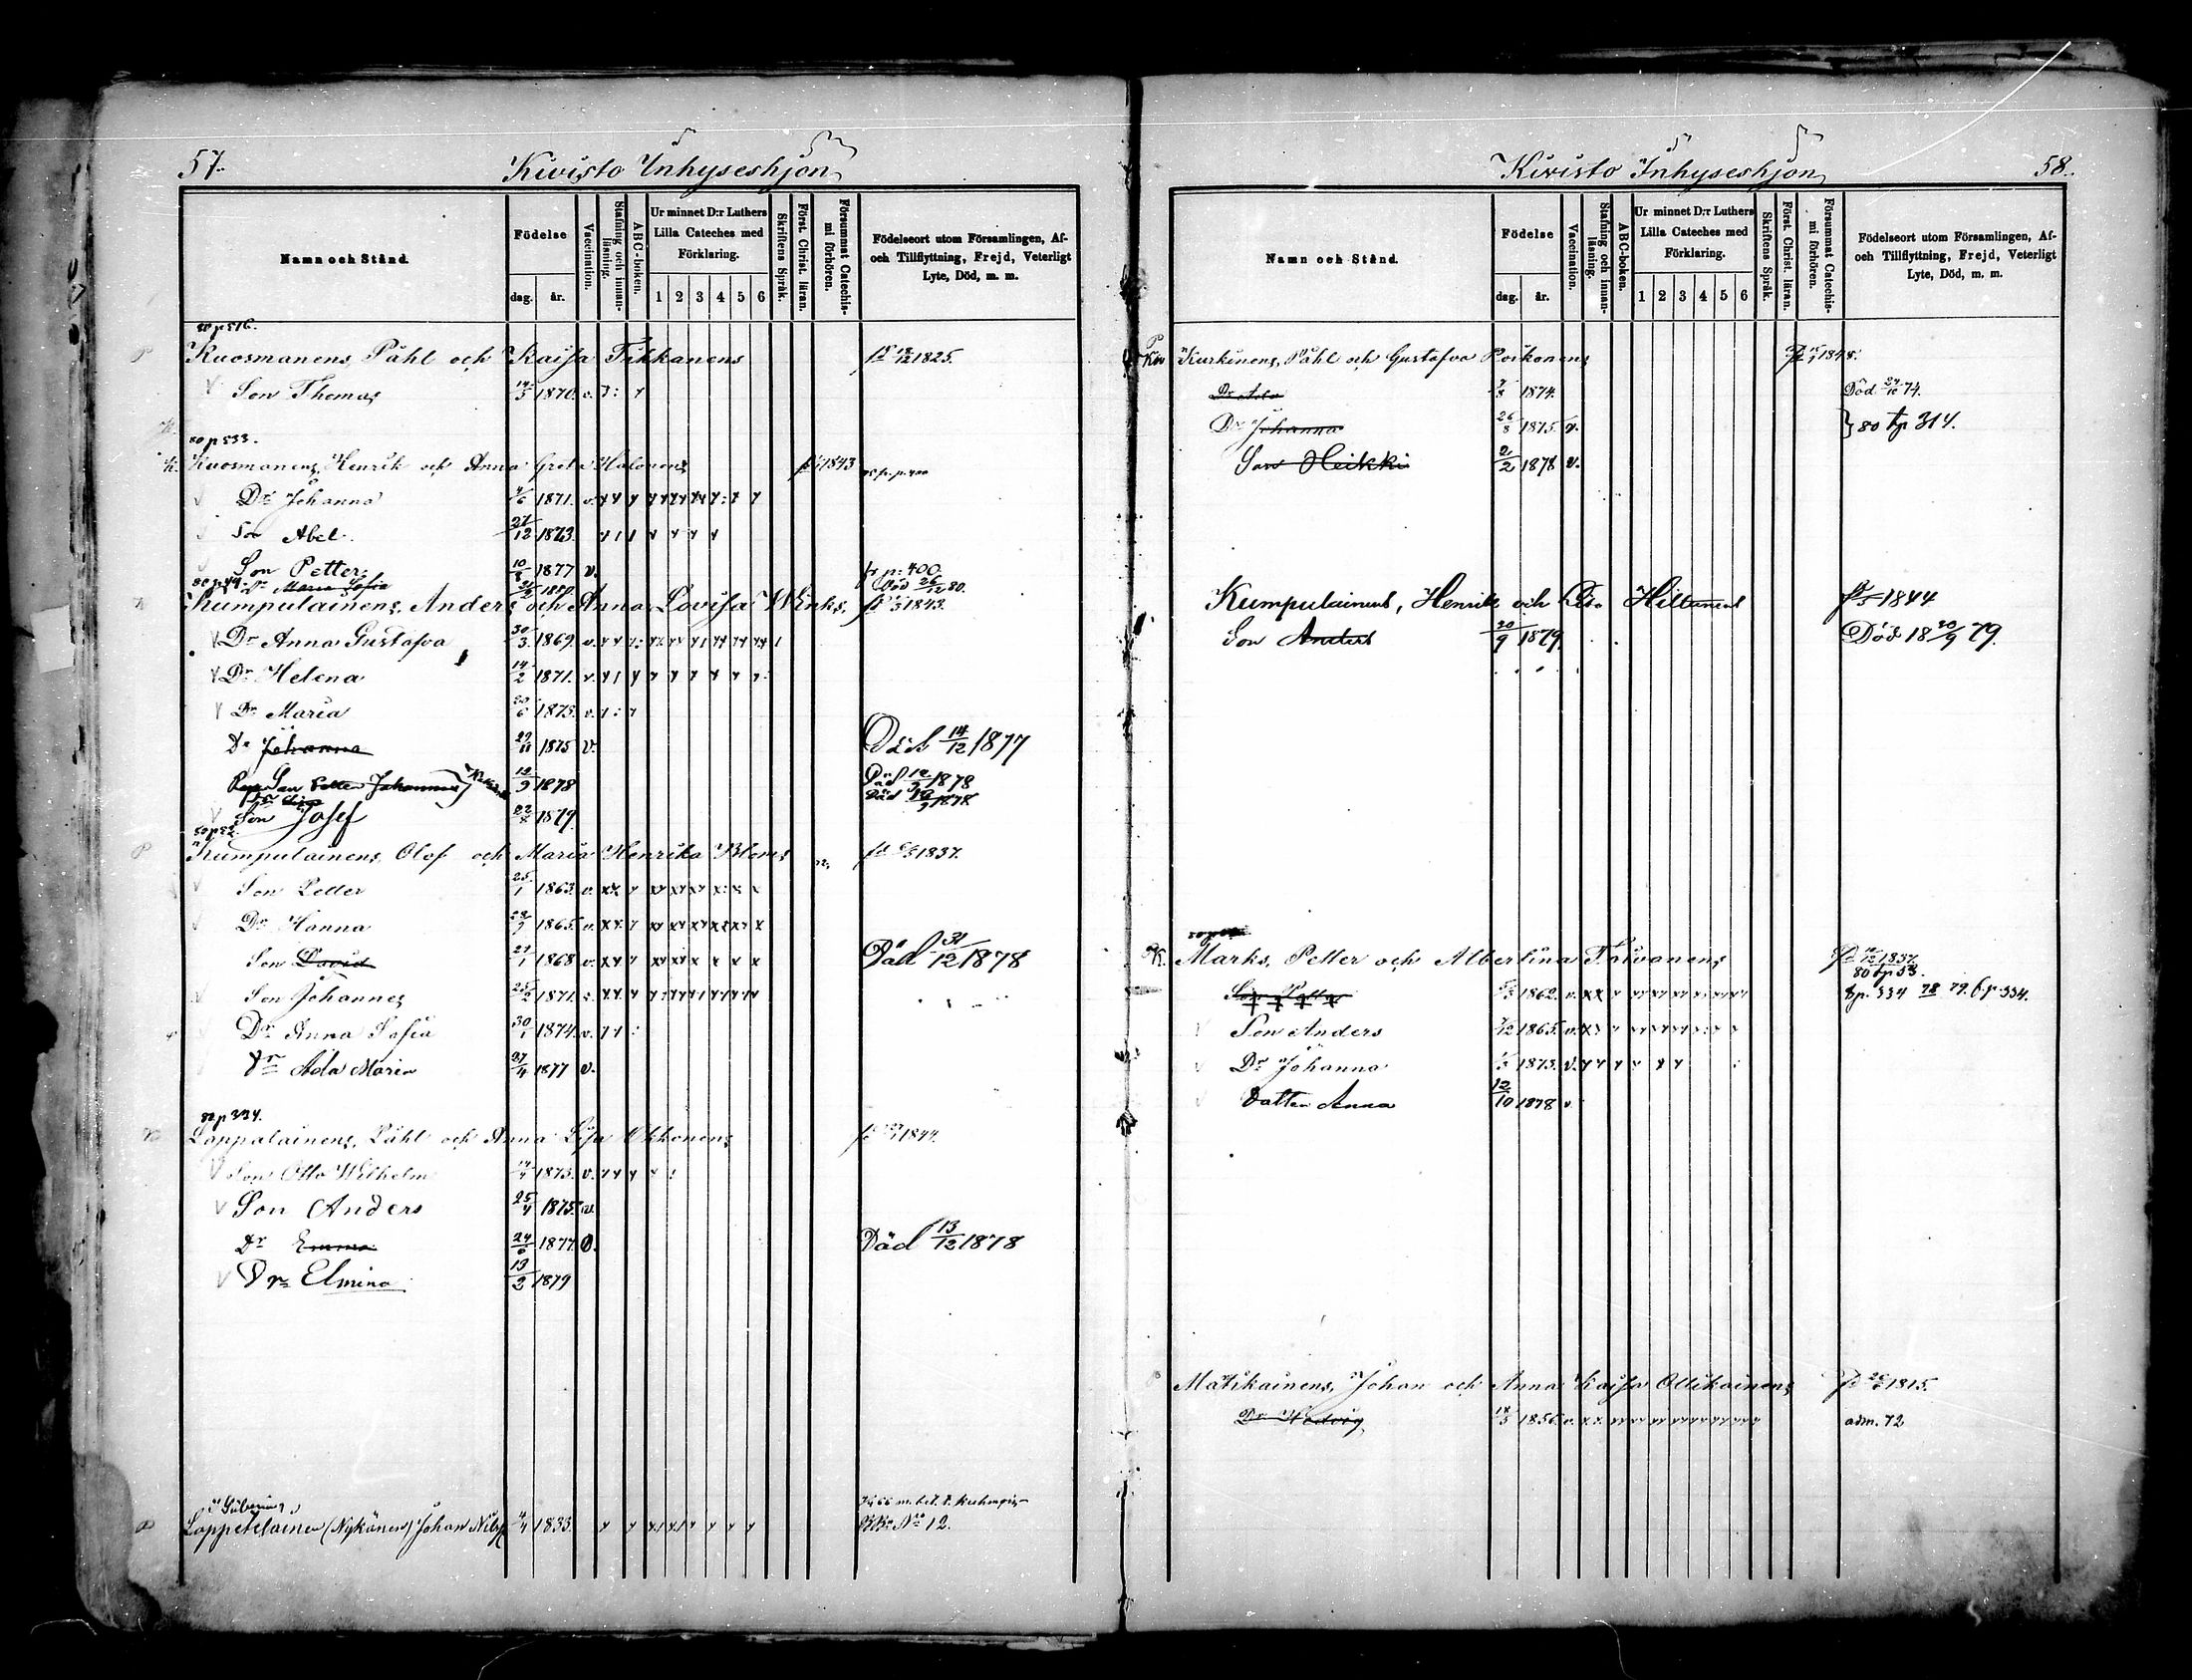 57.
Kivisto Inhyseshjon
Namn och Stånd.
Födelse
dag.
år.
Vaccination.
Stafning och innan-läsning.
ABC-boken.
Ur minnet D:r Luthers
Lilla Cateches med
Förklaring.
1 2 3 4 5 6
Skriftens Språk.
Först. Christ. läran.
Försummat Catechis-mi förhören.
Födelseort utom Församlingen, Af-
och Tillflyttning, Frejd, Veterligt
Lyte, Död, m. m.
80 p 516.
Kuosmanens, Påhl och Kaisa Tikkanens 1825.
Son Thomas 14/3 1870. v.
80 p 533.
Kuosmanens, Henrik och Anna Greta Halonens 1843
Dr Johanna 4/6 1871. v.
Son Abel 27/12 1873.
Son Petter 10/8 1877 v. fr p: 400.
Dr Maria Sofia 1880. Död 26/12 80.
Kumpulainens, Anders och Anna Lovisa Winks, 1843.
Dr Anna Gustafva 30/3 1869. v.
Dr Helena 14/2 1871. v.
Dr Maria 1873. v.
Dr Johanna 1875 v. Död 14/12 1877
Son Petter Johannes 12/9 1878 Död 12/9 1878
Död 1878
Son Josef 1879.
80 p 52.
Kumpulainens, Olof och Maria Henrika Bloms 1837.
Son Petter 25/1 1863. v.
Dr Hanna 1865. v.
Son David 27/1 1868 v. Död 31/12 1878
Son Johannes 25/2 1871.
Dr Anna Sofia 30/1 1874. v.
Dr Ada Maria 27/4 1877 v.
80 p 334.
Loppalainens, Påhl och Anna Lisa Okkonens 1844.
Son Otto Wilhelm 1873. v.
Son Anders 25/4 1875. v.
Dr Emma 24/6 1877. Död 13/12 1878
Dr Elmina 13/2 1879
Loppelainen (Nykänen) Johan Nilss 4/4 1833. N:o 12.
58.
Kivisto Inhyseshjon
Namn och Stånd.
Födelse
dag.
år.
Vaccination.
Stafning och innan-läsning.
ABC-boken.
Ur minnet D:r Luthers
Lilla Cateches med
Förklaring.
1 2 3 4 5 6
Skriftens Språk.
Först. Christ. läran.
Försummat Catechis-mi förhören.
Födelseort utom Församlingen, Af-
och Tillflyttning, Frejd, Veterligt
Lyte, Död, m. m.
Kurkinens, Påhl och Gustafva Poikonens 1848.
Dr 1874. Död 74.
Dr Johanna 26/8 1875. v. 80 fp 314.
Son Heikki 2/2 1878 v.
Kumpulainens, Henrik och Lisa Hiltunens 1844
Son Anders 20/9 1879. Död 18 30/9 79.
Marks, Petter och Albertina Toivanens 1837.
80 fp 53.
Son Petter 1862. v. fp. 334 78 79. fp 334.
Son Anders 1865. v.
Dr Johanna 1873. v.
Dotter Anna 12/10 1878 v
Matikainens, Johan och Anna Kaisa Ollikainens 1815.
Dr Hedvig 18/5 1856. v. adm. 72